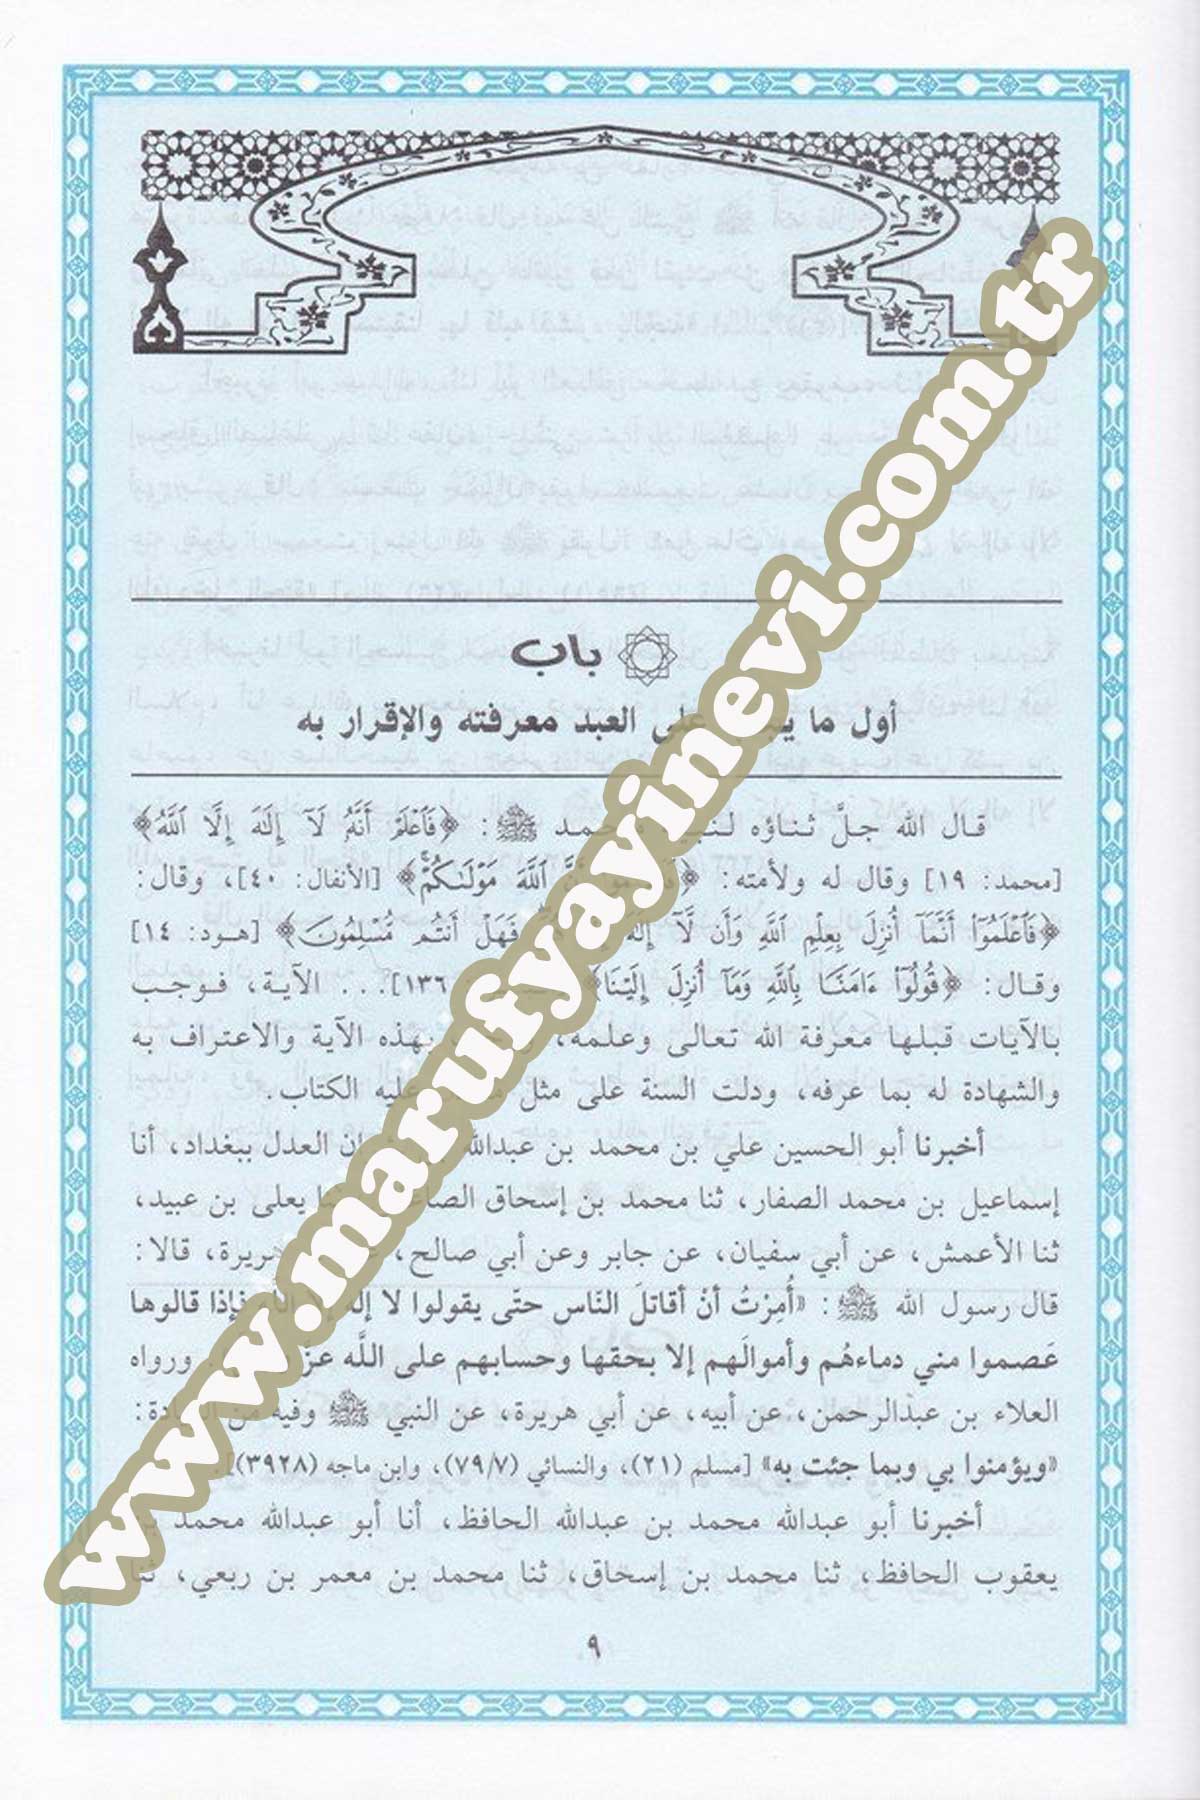 باب
أول ما على العبد معرفته والإقرار به
قال الله جلَّ ثناؤه ﷺ: ﴿فَٱعْلَمْ أَنَّهُۥ لَآ إِلَٰهَ إِلَّا ٱللَّهُ﴾
[محمد: ١٩] وقال له ولأمته: ﴿ ٱللَّهَ مَوْلَىٰكُمْ﴾ [الأنفال: ٤٠]، وقال:
﴿فَٱعْلَمُوٓا۟ أَنَّمَآ أُنزِلَ بِعِلْمِ ٱللَّهِ وَأَن لَّآ إِلَٰهَ فَهَلْ أَنتُم مُّسْلِمُونَ﴾ [هود: ١٤]
وقال: ﴿قُولُوٓا۟ ءَامَنَّا بِٱللَّهِ وَمَآ أُنزِلَ إِلَيْنَا﴾ ١٣٦]... الآية، فوجب
بالآيات قبلها معرفة الله تعالى وعلمه، بهذه الآية والاعتراف به
والشهادة له بما عرفه، ودلت السنة على مثل عليه الكتاب.
أخبرنا أبو الحسين علي بن محمد بن عبدالله العدل ببغداد، أنا
إسماعيل بن محمد الصفار، ثنا محمد بن إسحاق ثنا يعلى بن عبيد،
ثنا الأعمش، عن أبي سفيان، عن جابر وعن أبي صالح، هريرة، قالا:
قال رسول الله ﷺ: «أُمِرْتُ أنْ أقاتلَ النّاس حتّى يقولوا لا إله إلا الله فإذا قالوها
عَصموا مني دماءهُم وأموالَهم إلا بحقها وحسابهم على اللَّه عزَّ ورواه
العلاء بن عبدالرحمن، عن أبيه، عن أبي هريرة، عن النبي ﷺ وفيه من
«ويؤمنوا بي وبما جئت به» [مسلم (٢١)، والنسائي (٧/٧٩)، وابن ماجه (٣٩٢٨)].
أخبرنا أبو عبدالله محمد بن عبدالله الحافظ، أنا أبو عبدالله محمد بن
يعقوب الحافظ، ثنا محمد بن إسحاق، ثنا محمد بن معمر بن ربعي، ثنا
٩
www.marufyayinevi.com.tr